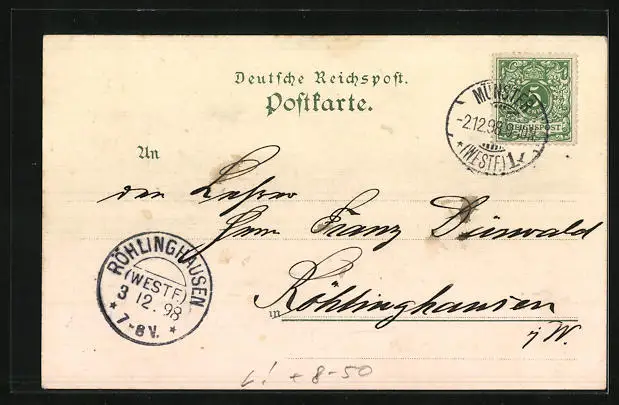 Deutsche Reichspost.
Postkarte.
5
REICHSPOST
MÜNSTER
-2.12.98
* (WESTF.) 1
An
den Lehrer
Herrn Franz Dürwald
in Röhlinghausen
i/W.
RÖHLINGHAUSEN
(WESTF.)
3 12. 98
* 7-8 V. *
+ 8-50